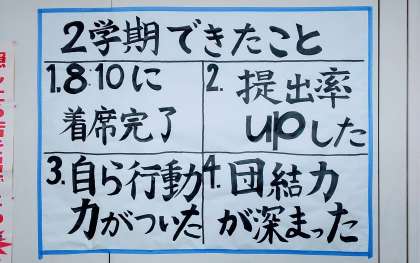 2学期できたこと
1.8:10に
着席完了
2.提出率
upした
3.自ら行動
力がついた
4.団結力
が深まった